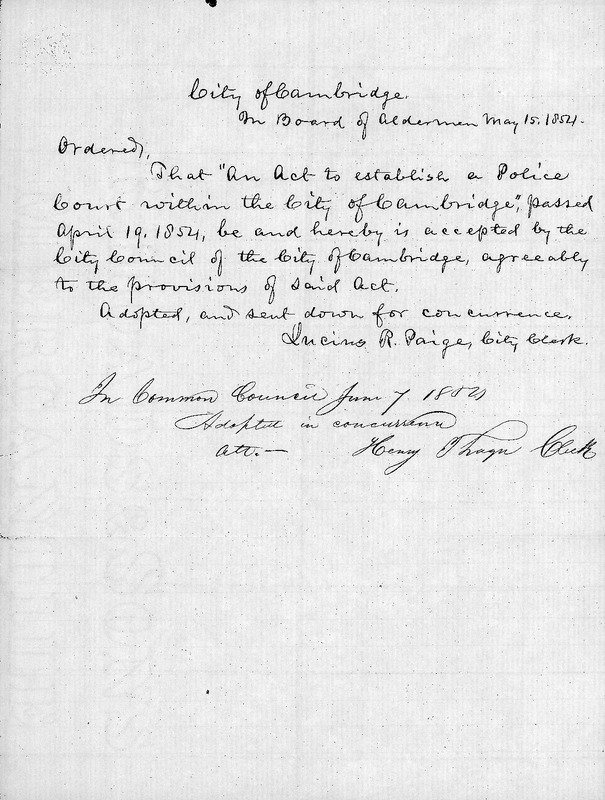 City of Cambridge.
In Board of Aldermen May 15. 1854.
Ordered,
That "An Act to establish a Police
Court within the City of Cambridge", passed
April 19. 1854, be and hereby is accepted by the
City Council of the City of Cambridge, agreeably
to the provisions of said Act.
Adopted, and sent down for concurrence.
Lucius R. Paige, City Clerk.
In Common Council June 7. 1854
Adopted in concurrence
Att.— Henry Thayer Clerk